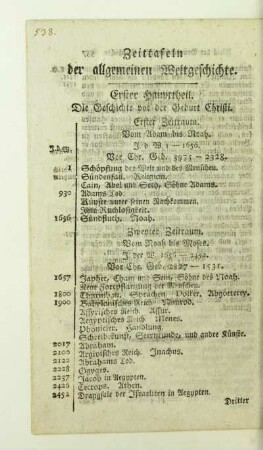 538.
Zeittafeln
der allgemeinen Weltgeschichte.
Erster Haupttheil.
Die Geschichte vor der Geburt Christi.
Erster Zeitraum.
Vom Adam bis Noah.
J. d. W. 1 — 1656.
Vor Chr. Geb. 3975 — 2328.
J. d. W.
1 Schöpfung der Welt und des Menschen.
Sündenfall. Religion.
Cain, Abel und Seth, Söhne Adams.
930 Adams Tod.
Künste unter seinen Nachkommen.
Ihre Ruchlosigkeit.
1656 Sündfluth. Noah.
Zweyter Zeitraum.
Vom Noah bis Moses.
J. der W. 1656 — 2452.
Vor Chr. Geb. 2327 — 1531.
1657 Japhet, Cham und Sem, Söhne des Noah.
Neue Fortpflanzung der Menschen.
1800 Thurmbau. Sprachen. Völker. Abgötterey.
1900 Babylonisches Reich. Nimrod.
Assyrisches Reich. Assur.
Aegyptisches Reich. Menes.
Phönicier. Handlung.
Schreibekunst, Sternkunde, und andre Künste.
2017 Abraham.
2100 Argivisches Reich. Inachus.
2122 Abrahams Tod.
2208 Ogyges.
2237 Jacob in Aegypten.
2426 Cecrops. Athen.
2452 Drangsale der Israeliten in Aegypten.
Dritter